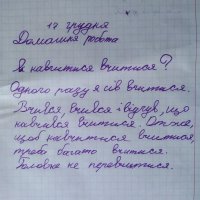 17 грудня
Домашня робота
Як навчитися вчитися?
Одного разу я сів вчитися.
Вчився, вчився і відчув, що
навчився вчитися. Отже,
щоб навчитися вчитися,
треба багато вчитися.
Головне не перевчитися.